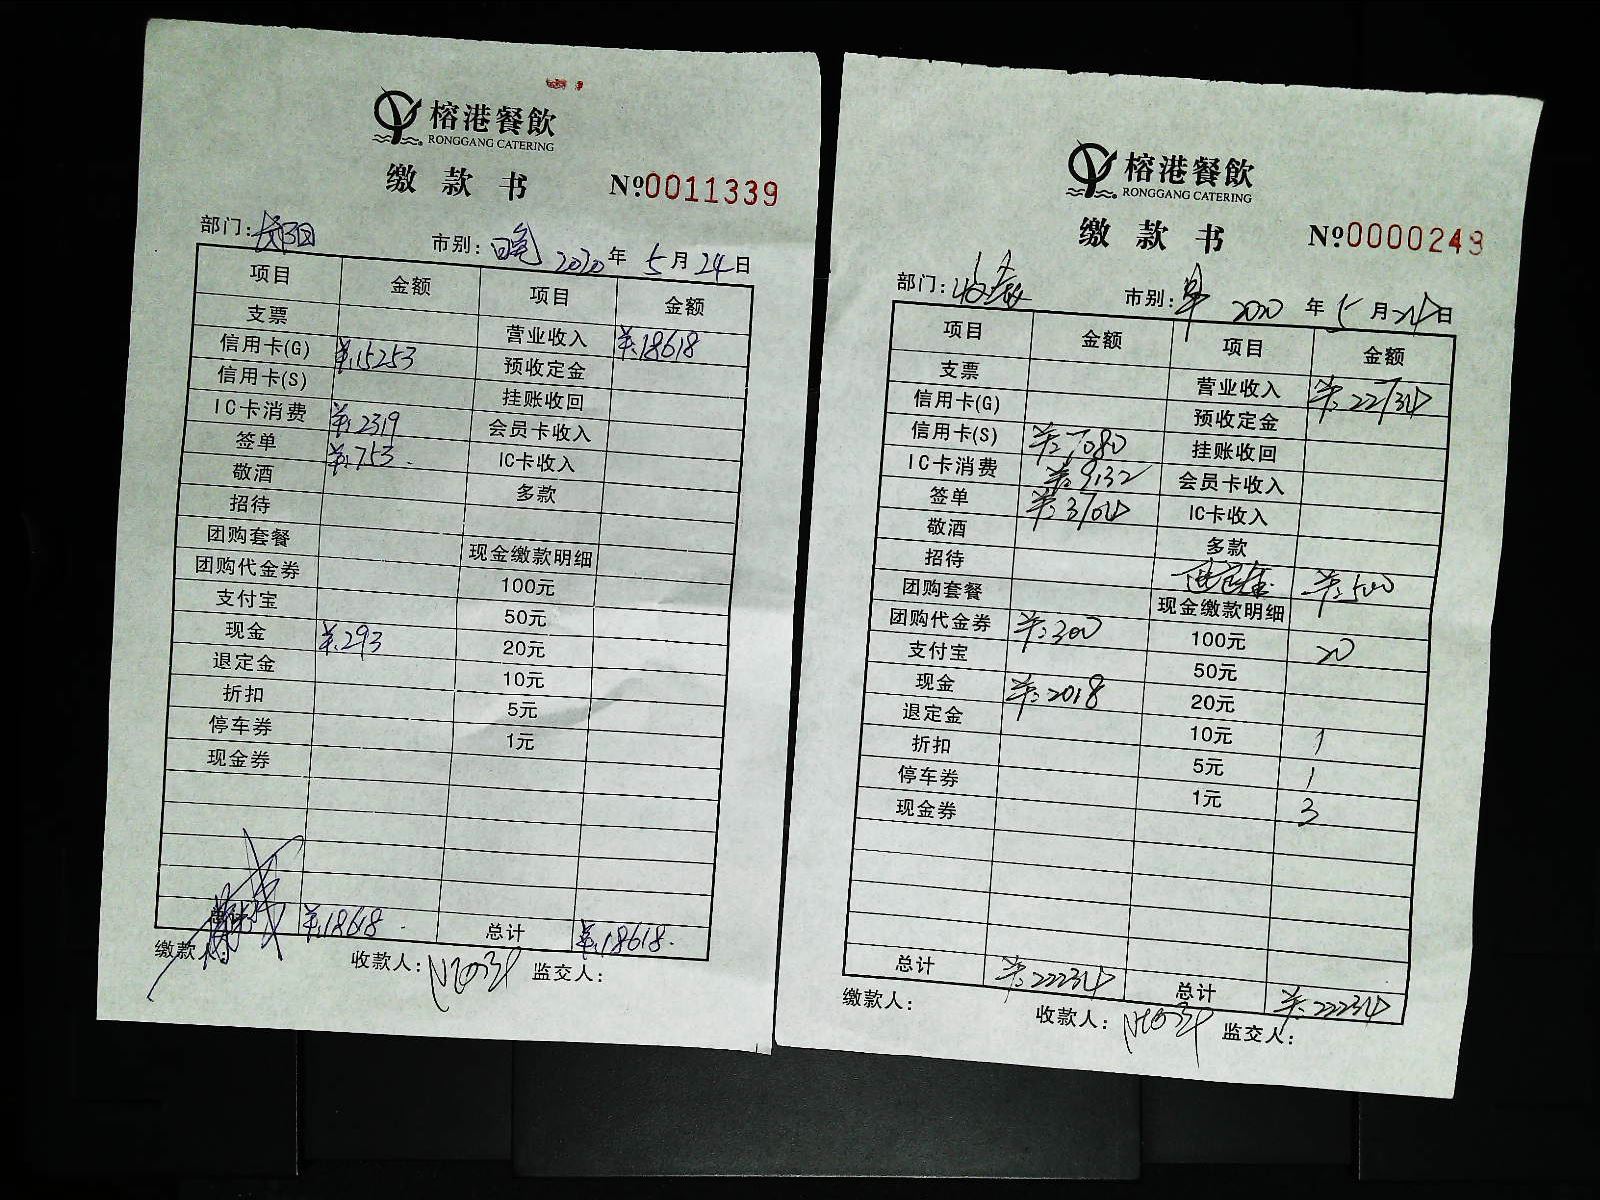 榕港餐飲
RONGGANG CATERING
缴款书 №0011339
部门: 市别: 晚 2020年5月24日
项目 金额 项目 金额
支票 营业收入 ¥:18618
信用卡(G) ¥:15253 预收定金
信用卡(S) 挂账收回
IC卡消费 ¥:2319 会员卡收入
签单 ¥:753 IC卡收入
敬酒 多款
招待
团购套餐 现金缴款明细
团购代金券 100元
支付宝 50元
现金 ¥:293 20元
退定金 10元
折扣 5元
停车券 1元
现金券
¥:18618 总计 ¥:18618
缴款人: 收款人: 监交人:
榕港餐飲
RONGGANG CATERING
缴款书 №0000249
部门: 市别: 早 2020年5月24日
项目 金额 项目 金额
支票 营业收入
信用卡(G) 预收定金
信用卡(S) ¥:7080 挂账收回
IC卡消费 ¥:9132 会员卡收入
签单 ¥:3704 IC卡收入
敬酒 多款
招待 ¥:500
团购套餐 现金缴款明细
团购代金券 ¥:300 100元 20
支付宝 50元
现金 ¥:2018 20元
退定金 10元 1
折扣 5元 1
停车券 1元 3
现金券
总计 ¥:22234 总计 ¥:22234
缴款人: 收款人: 监交人: